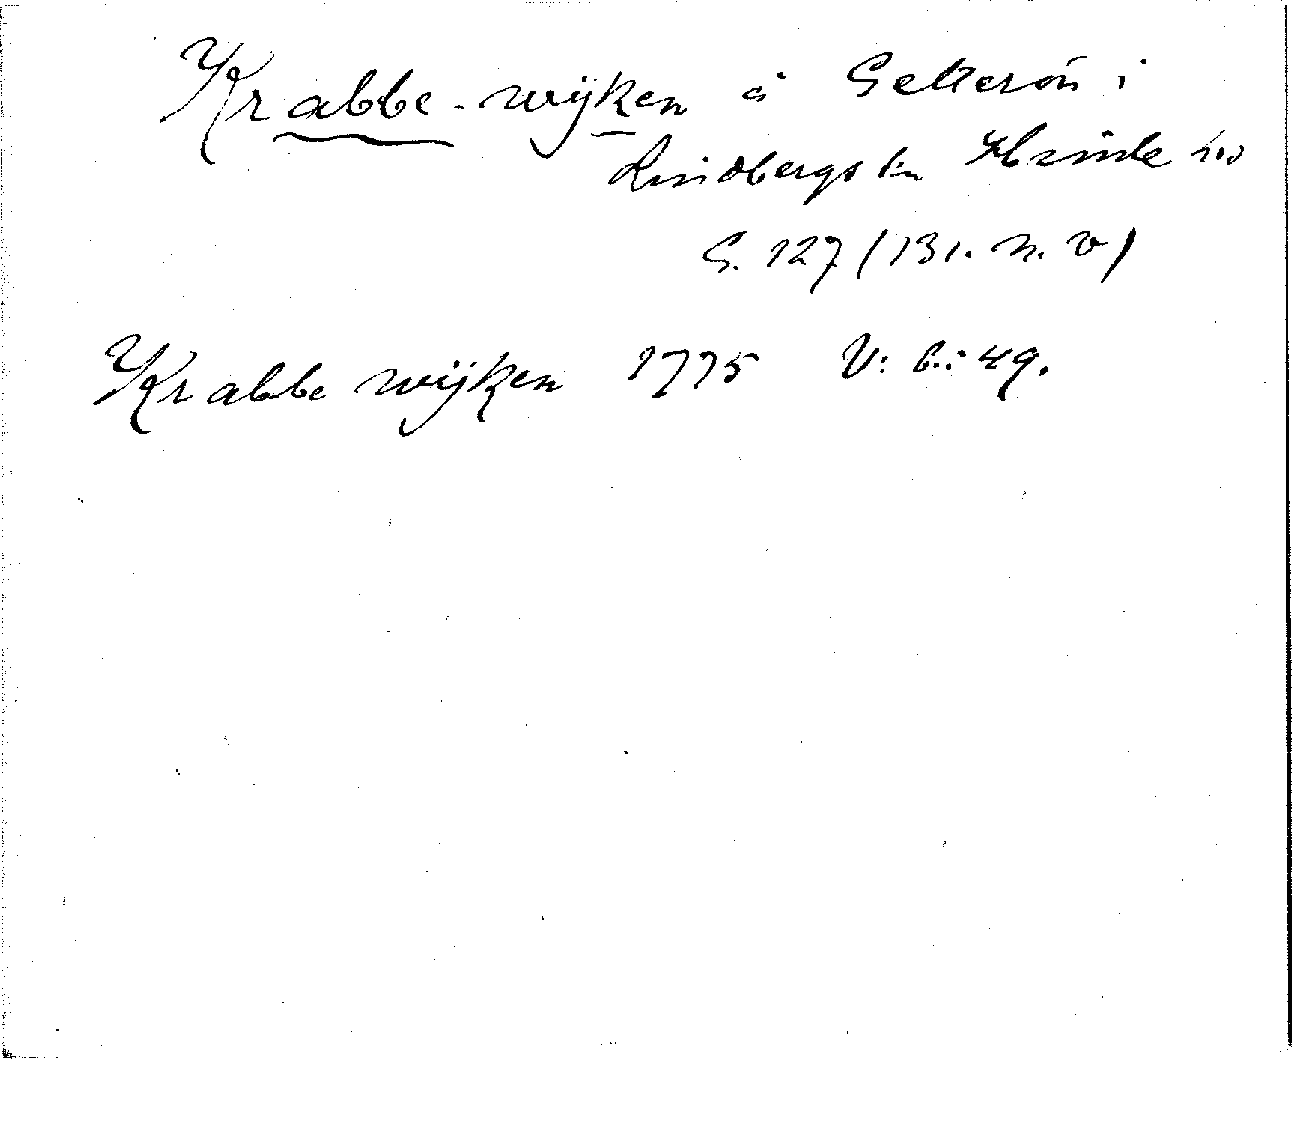 Krabbe-wijken å Getterön i
Lindbergs sn Himle hd
S. 127 (131. n. v)
Krabbe wijken 1775 V: b.: 49.